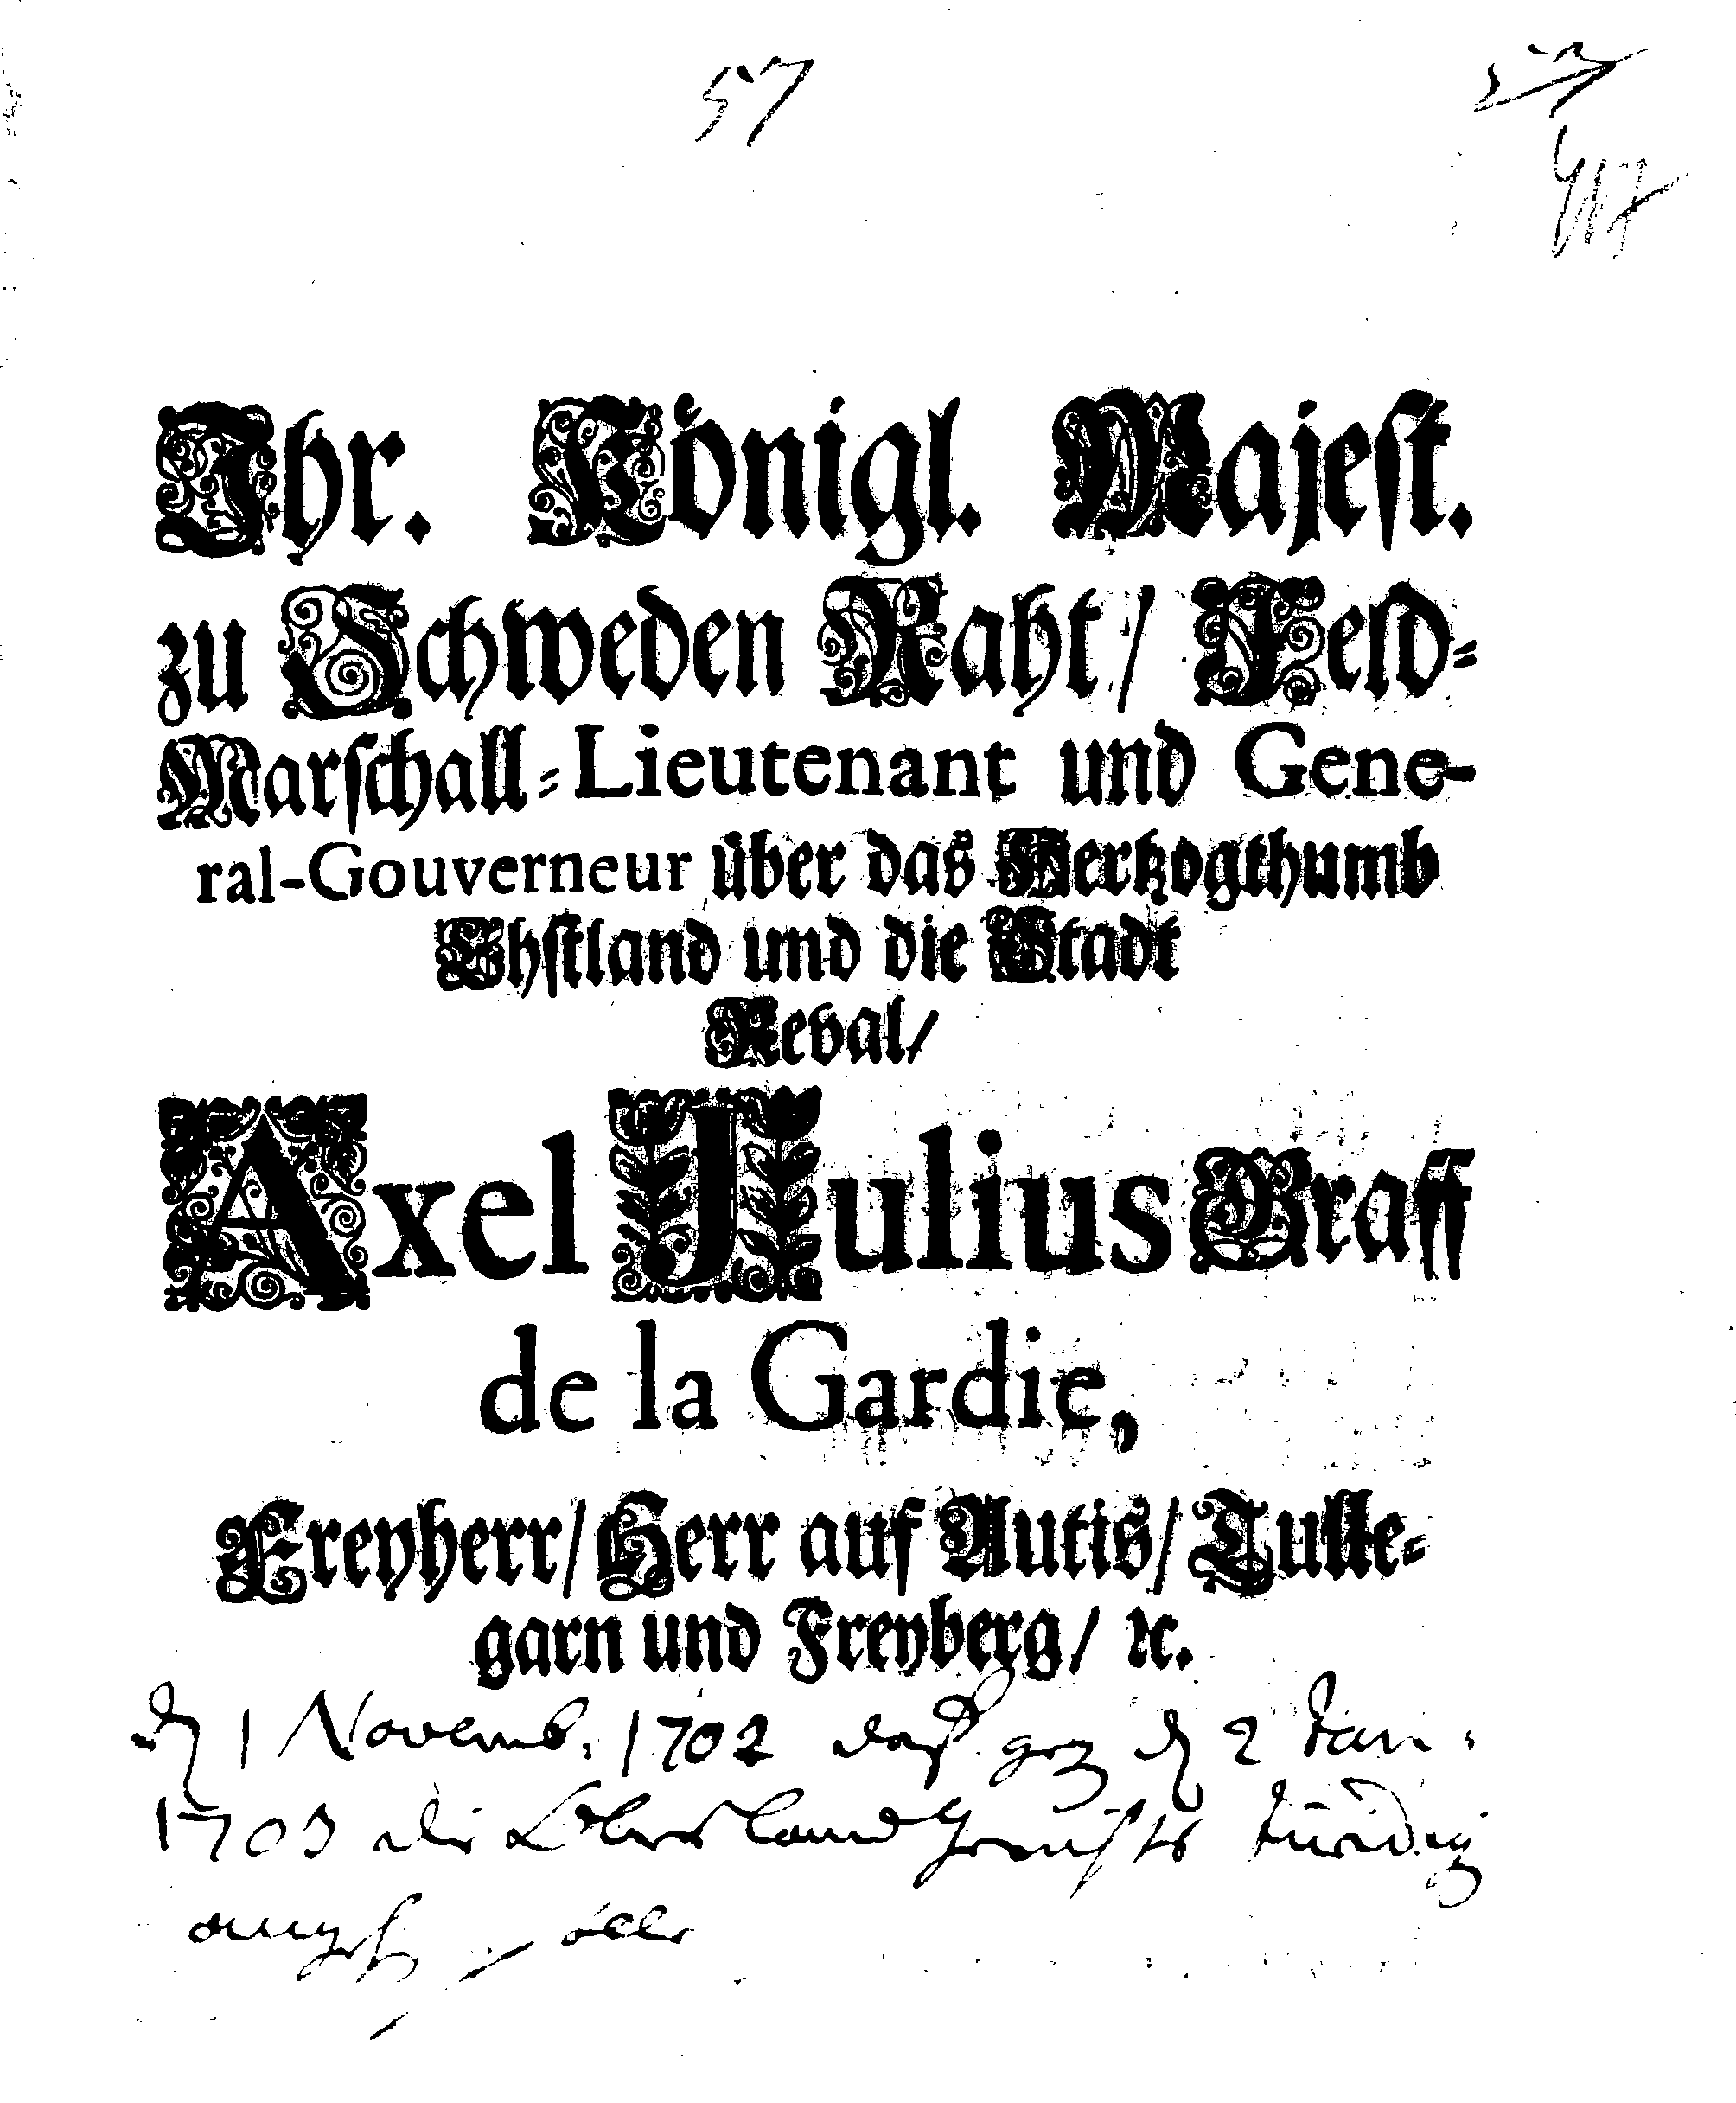 57
Ihr. Königl. Majest.
zu Schweden Raht/ Feld-
Marschall-Lieutenant und Gene-
ral-Gouverneur über das Hertzogthumb
Ehstland und die Stadt
Reval/
Axel Julius Graff
de la Gardie,
Freyherr/ Herr auf Autis/ Tulle-
garn und Freyberg/ ꝛc.
1 Novemb. 1702 daß 2 Jan.
1703 die